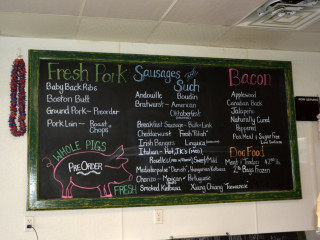 Fresh Pork
Baby Back Ribs
Boston Butt
Ground Pork - Preorder
Pork Loin - Roast
Chops
WHOLE PIGS
PRE ORDER
FRESH
Sausages and
Such
Andouille Boudin
Bratwurst - American
Oktoberfest
Breakfast Sausage - Bulk - Link
Cheddarwurst Fresh "Polish"
Irish Bangers Linguica
Italian - Hot,
Sweet/Mild
Smoked Kielbasa
Chorizo - Mexican - Portuguese
Xiang Chiang Taiwanese
Bacon
Applewood
Canadian Back
Jalapeno
Naturally Cured
Peppered
Pea Meal
Sugar Free
Dog Food
Meat & Tendon
2# Bags Frozen